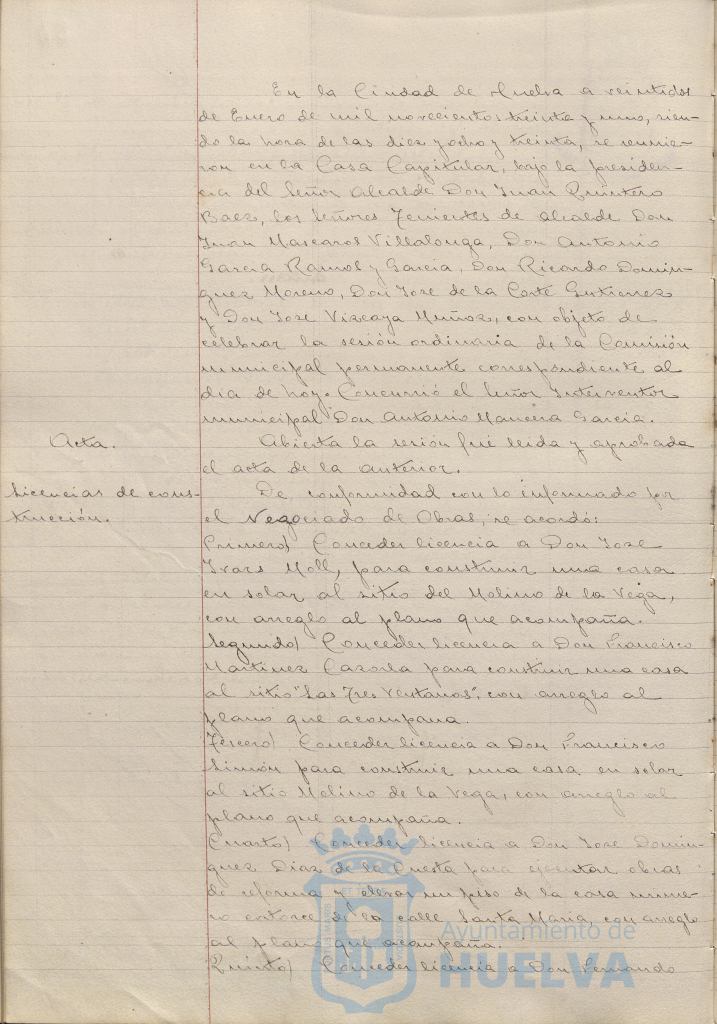 En la Ciudad de Huelva a veintidos
de Enero de mil novecientos treinta y uno, sien-
do la hora de las diez y ocho y treinta, se reunie-
ron en la Casa Capitular, bajo la presiden-
cia del Señor Alcalde Don Juan Quintero
Baez, los Señores Tenientes de alcalde Don
Juan Mascaros Villalonga, Don Antonio
Garcia Ramos y Garcia, Don Ricardo Domin-
guez Moreno, Don Jose de la Corte Gutierrez
y Don Jose Vizcaya Muñoz, con objeto de
celebrar la sesión ordinaria de la Comisión
municipal permanente correspondiente al
dia de hoy. Concurrió el Señor Interventor
municipal Don Antonio Mancera Garcia.
Acta. Abierta la sesión fué leida y aprobada
el acta de la anterior.
Licencias de cons- De conformidad con lo informado por
trucción. el Negociado de Obras, se acordó:
Primero) Conceder licencia a Don Jose
Ivars Moll, para construir una casa
en solar al sitio del Molino de la Vega,
con arreglo al plano que acompaña.
Segundo) Conceder licencia a Don Francisco
Martinez Cazorla para construir una casa
al sitio "Las Tres Ventanas", con arreglo al
plano que acompaña.
Tercero) Conceder licencia a Don Francisco
Limón para construir una casa en solar
al sitio Molino de la Vega, con arreglo al
plano que acompaña.
Cuarto) Conceder licencia a Don Jose Domin-
guez Diaz de la Cuesta para ejecutar obras
de reforma y elevar un piso de la casa nume-
ro catorce de la calle Santa Maria, con arreglo
al plano que acompaña.
Quinto) Conceder licencia a Don Fernando
Ayuntamiento de
HUELVA